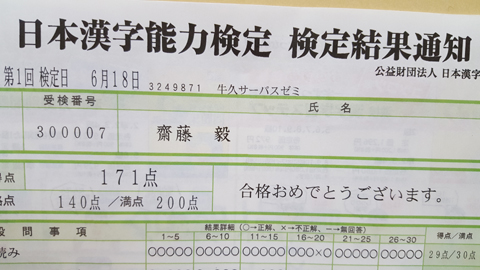 日本漢字能力検定 検定結果通知
第1回 検定日 6月18日 3249871 牛久サーパスゼミ 公益財団法人 日本漢字
受検番号 氏名
300007 齋藤 毅
得点 171点
点 140点 /満点 200点 合格おめでとうございます。
設問事項 結果詳細 (○→正解、×→不正解、-→無回答) 得点/満点
1~5 6~10 11~15 16~20 21~25 26~30
読み ○○○○○ ○○○○○ ○○○○○ ○○○×○ ○○○○○ ○○○○○ 29点/30点